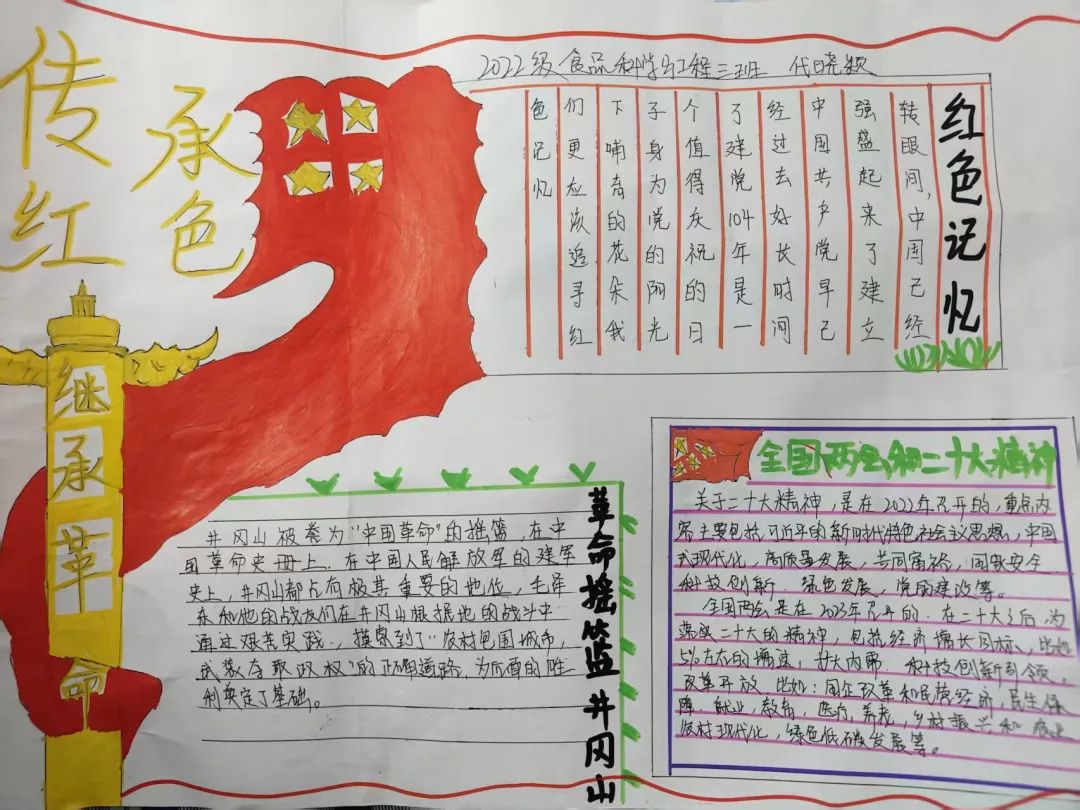 传承
红色
继承革命
2022级食品科学与工程三班 代晓颖
红色记忆
转眼间,中国已经
强盛起来了建立
中国共产党早已
经过去好长时间
了建党104年是一
个值得庆祝的日
子身为党的阳光
下哺育的花朵我
们更应该追寻红
色记忆
革命摇篮井冈山
井冈山被誉为“中国革命”的摇篮,在中
国革命史册上,在中国人民解放军的建军
史上,井冈山都占有极其重要的地位,毛泽
东和他的战友们在井冈山根据地的战斗中
通过艰苦实践,摸索到了“农村包围城市,
武装夺取政权”的正确道路,为后面的胜
利奠定了基础。
全国两会和二十大精神
关于二十大精神,是在2022年召开的,重点内
容主要包括习近平的新时代特色社会主义思想,中国
式现代化,高质量发展,共同富裕,国家安全
科技创新、绿色发展,党的建设等。
全国两会是在2023年召开的.在二十大之后,为
落实二十大的精神,包括经济增长目标,比如
5%左右的增速,扩大内需,科技创新引领,
改革开放,比如:国企改革和民营经济,民生保
障、就业,教育,医疗,养老,乡村振兴和农业
农村现代化,绿色低碳发展等。